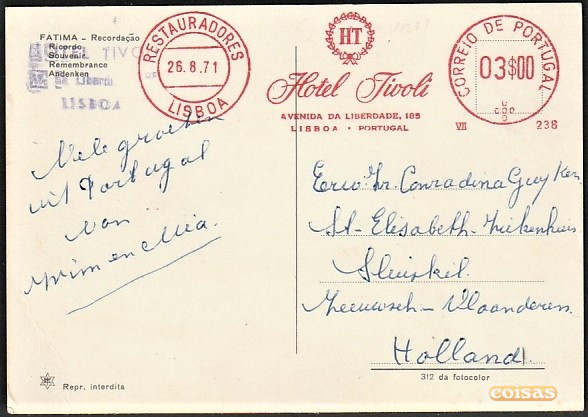 FATIMA - Recordação
Ricordo
Souvenir
Remembrance
Andenken
HOTEL TIVOLI
LISBOA
RESTAURADORES
26.8.71
LISBOA
HT
Hotel Tivoli
AVENIDA DA LIBERDADE, 185
LISBOA · PORTUGAL
CORREIO DE PORTUGAL
03$00
VII
236
Vele groeten
uit Portugal
van
Wim en Mia.
Eerw. Zr. Conradina Guyken
St-Elisabeth-Ziekenhuis
Sluiskil.
Zeeuwsch-Vlaanderen.
Holland.
Repr. interdita
312 da fotocolor
coisas